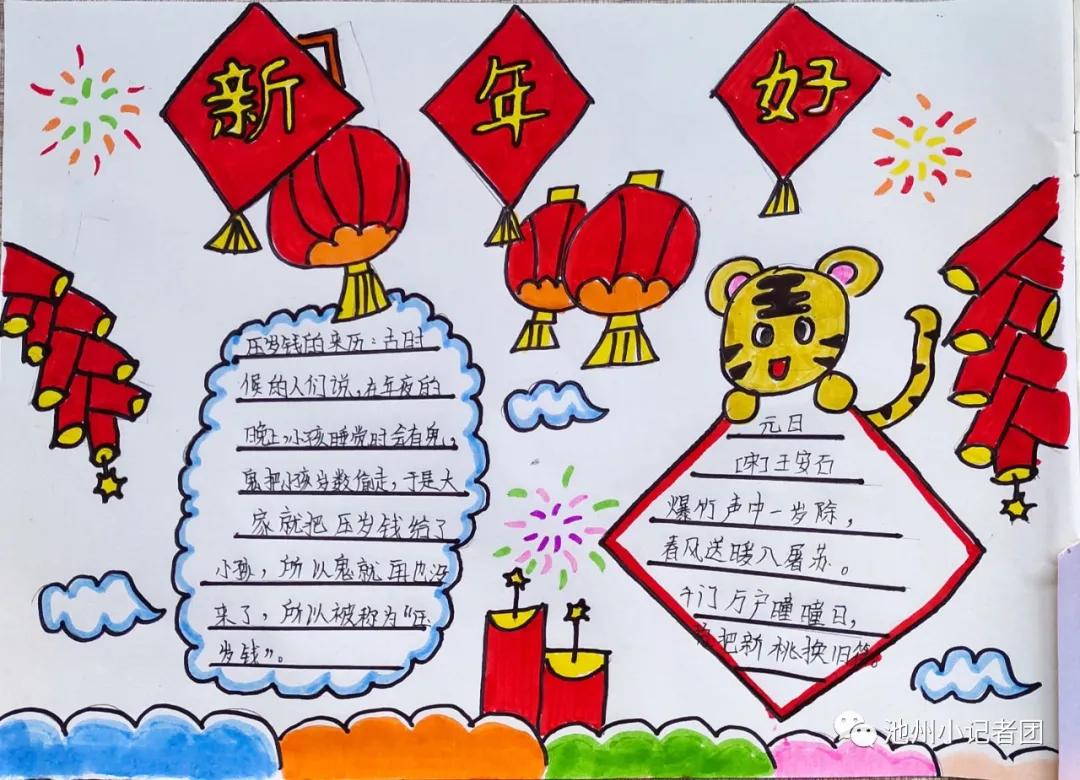 新年好
压岁钱的来历:古时
候的人们说,在年夜的
晚上,小孩睡觉时会有鬼,
鬼把小孩岁数偷走,于是大
家就把压岁钱给了
小孩,所以鬼就再也没
来了,所以被称为“压
岁钱”。
元日
[宋]王安石
爆竹声中一岁除,
春风送暖入屠苏。
千门万户曈曈日,
把新桃换旧符。
池州小记者团